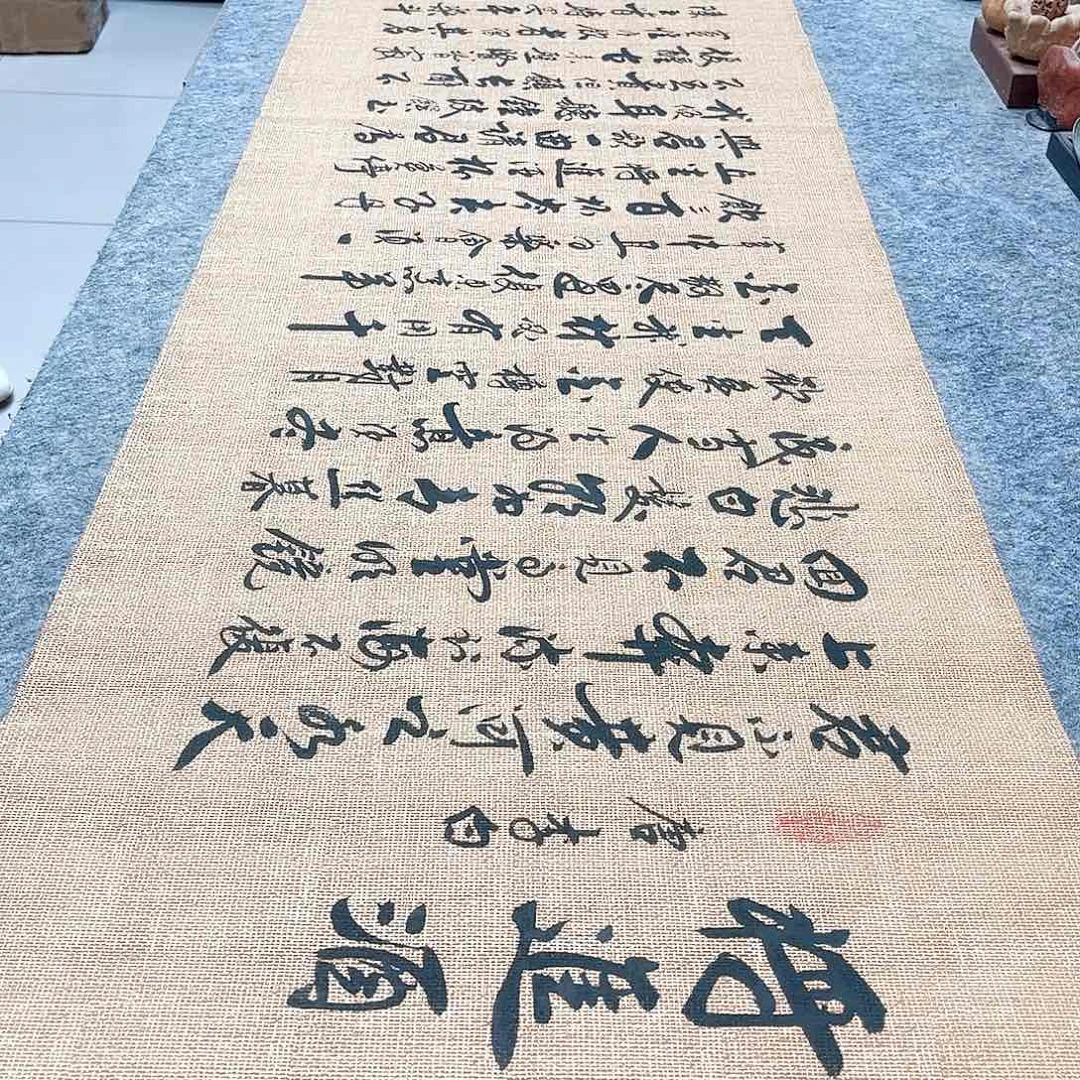 將進酒
唐李白
君不見黃河之水天
上来奔流到海不復
回君不見高堂明鏡
悲白髮朝如青絲暮
成雪人生得意須盡
歡莫使金樽空對月
天生我材必有用千
金散盡還復來烹羊
宰牛且為樂會須一
飲三百杯岑夫子丹
丘生將進酒杯莫停
與君歌一曲請君為
我傾耳聽鐘鼓饌玉
不足貴但願長醉不
復醒古來聖賢皆寂
寞惟有飲者留其名
陳王昔時宴平樂斗